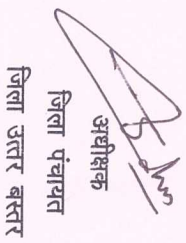 अधीक्षक
जिला पंचायत
जिला उत्तर बस्तर